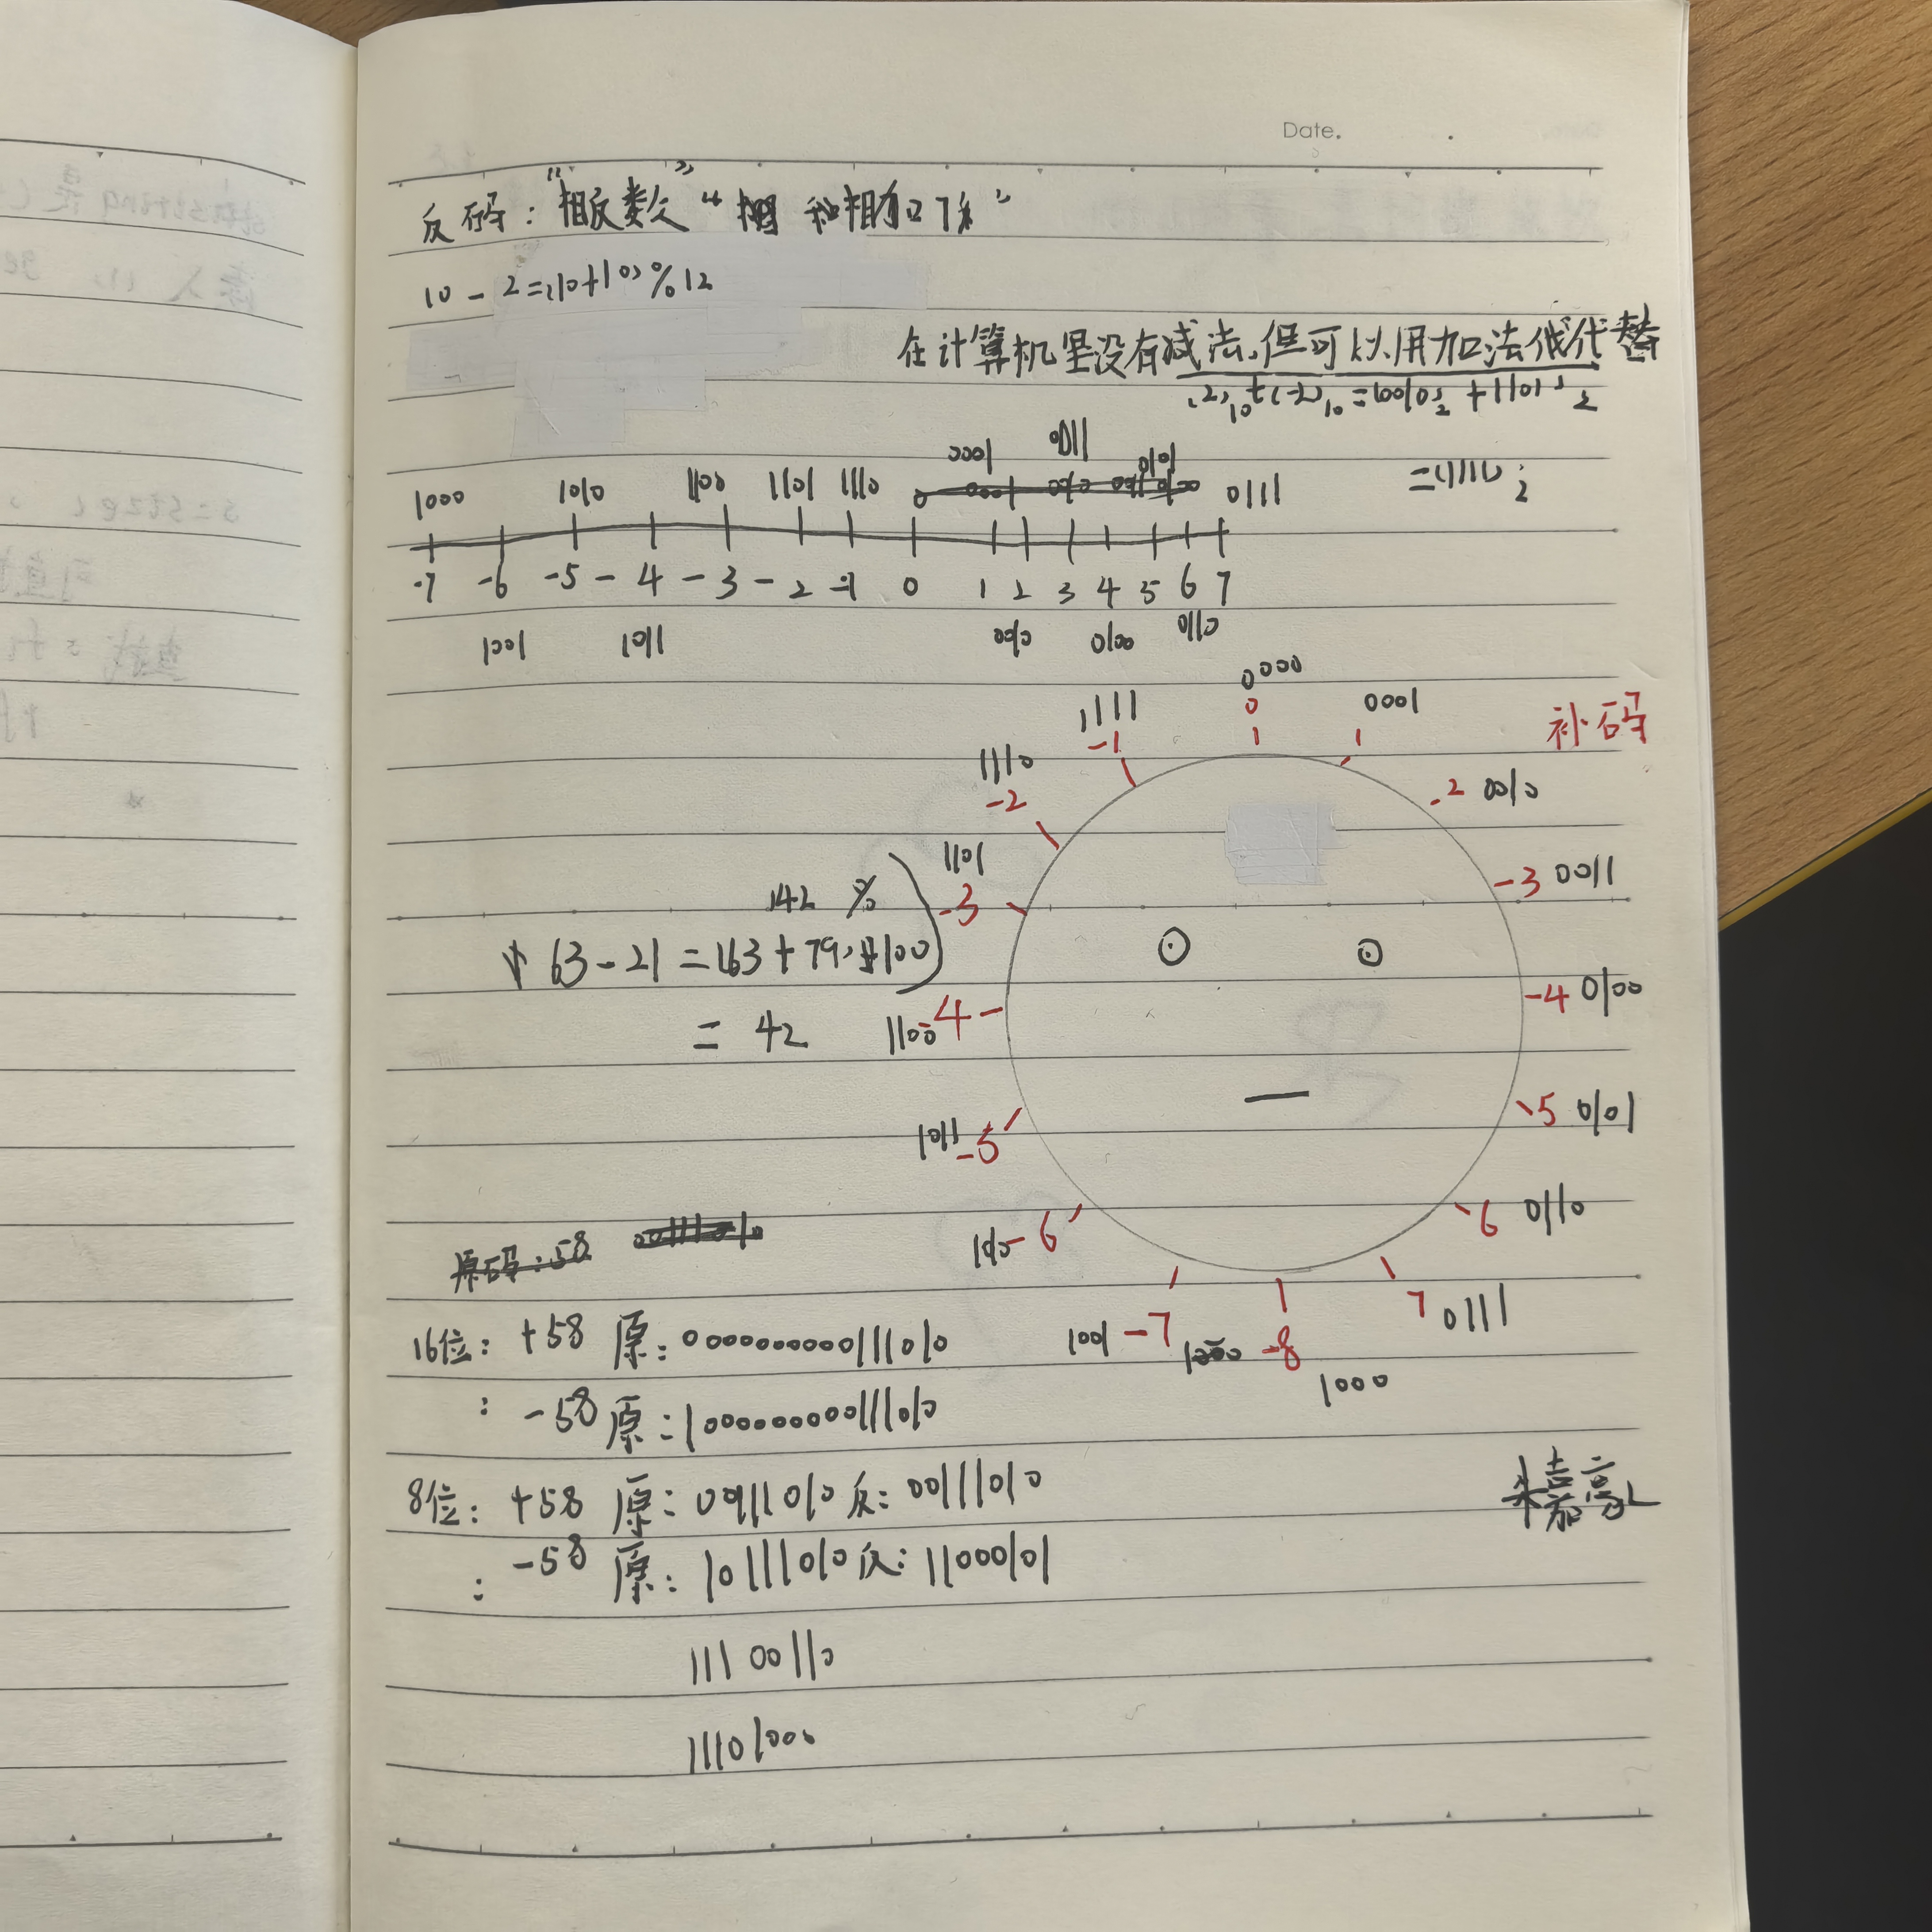 Date.
反码："相反数" " 和相加
10 - 2=(10+10)%12
在计算机里没有减法,但可以用加法代替
(2)10+(-2)10=(0010)2+(1101)2
=(1111)2
0001 0011 0101
1000 1010 1100 1101 1110 0 0111
-7 -6 -5 -4 -3 -2 -1 0 1 2 3 4 5 6 7
1001 1011 0010 0100 0110
补码
0000
0
1111 0001
-1 1
1110
-2 2 0010
1101
-3 3 0011
142 %
63-21=(63+79)%100
=42
1100 -4 4 0100
1011 -5 5 0101
1010 -6 6 0110
1001 -7 1000 -8 7 0111
1000
原码:58 00111010
16位: +58 原: 0000000000111010
: -58 原: 1000000000111010
8位: +58 原: 00111010 反: 00111010
: -58 原: 10111010 反: 11000101
朱嘉豪
11100110
11101000